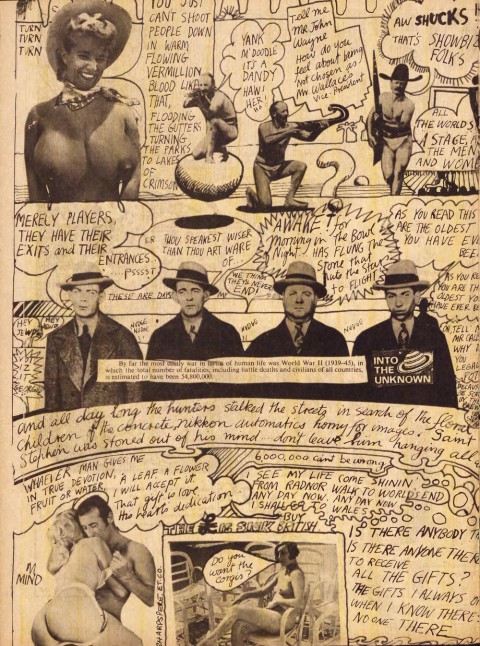 TURN
TURN
TURN
YOU JUST
CANT SHOOT
PEOPLE DOWN
IN WARM
FLOWING
VERMILLION
BLOOD LIKE
THAT,
FLOODING
THE GUTTERS
TURNING
THE PARKS
TO LAKES
OF
CRIMSON
YANK
M'DOODLE
ITS A
DANDY
HAW!
HER!
Tell me
Mr John
Wayne
How do you
feel about being
not chosen as
Mr. Wallace's
Vice President
AW SHUCKS!
THAT'S SHOWBIZ
FOLKS
ALL
THE WORLDS
A STAGE,
THE MEN
AND WOME
MERELY PLAYERS,
THEY HAVE THEIR
EXITS and THEIR
ENTRANCES
....PSSSST
THESE ARE DAYS
THOU SPEAKEST WISER
THAN THOU ART WARE
OF...
WE THINK
THEY'D NEVER
END
AWAKE! for
Morning in the Bowl of
Night! HAS FLUNG THE
Stone that
Puts the Stars
to FLIGHT
AS YOU READ THIS
ARE THE OLDEST
YOU HAVE EV
BEE
HEY
By far the most deadly war in terms of human life was World War II (1939–45), in
which the total number of fatalities, including battle deaths and civilians of all countries,
is estimated to have been 54,800,000.
INTO
THE
UNKNOWN
and all day long the hunters stalked the streets in search of the floral
children of the concrete, nikkon automatics horny for images. Saint
Stephen was stoned out of his mind - don't leave him hanging all
6,000,000 can't be wrong
WHATEVER MAN GIVES ME
IN TRUE DEVOTION,
FRUIT OR WATER,
A LEAF A FLOWER
I WILL ACCEPT IT.
That gift is love
His heart's dedication
I SEE MY LIFE COME SHININ'
FROM RADNOR WALK TO WORLDS END
ANY DAY NOW, ANY DAY NOW
I SHALL BE
WALES
BUY
BRITISH
MIND
Do you
want the
corgis?
IS THERE ANYBODY T
IS THERE ANYONE THER
TO RECEIVE
ALL THE GIFTS?
THE GIFTS I ALWAYS O
WHEN I KNOW THERE'S
NO ONE THERE